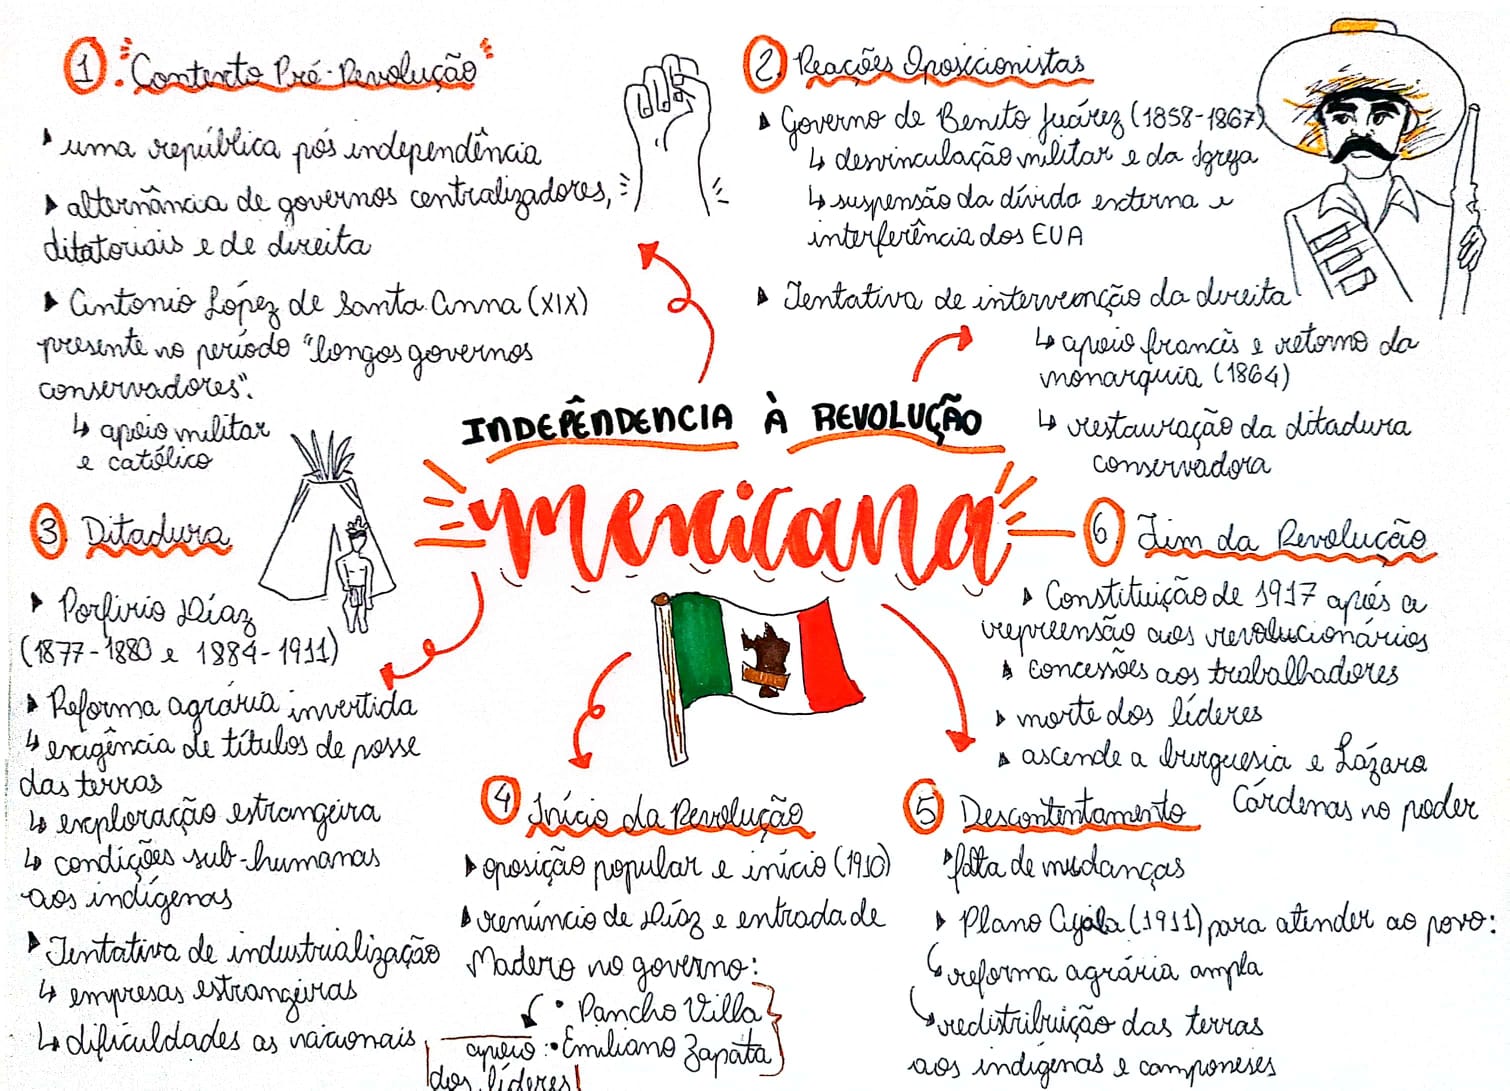 INDEPÊNDENCIA À REVOLUÇÃO
mexicana
1. "Contexto Pré-Revolução"
uma república pós independência
alternância de governos centralizadores,
ditatoriais e de direita
Antonio López de Santa Anna (XIX)
presente no período "longos governos
conservadores".
↳ apoio militar
e católico
2. Reações Oposicionistas
Governo de Benito Juárez (1858-1867)
↳ desvinculação militar e da Igreja
↳ suspensão da dívida externa e
interferência dos EUA
Tentativa de intervenção da direita
↳ apoio francês e retorno da
monarquia (1864)
↳ restauração da ditadura
conservadora
3. Ditadura
Porfirio Díaz
(1877-1880 e 1884-1911)
Reforma agrária invertida
↳ exigência de títulos de posse
das terras
↳ exploração estrangeira
↳ condições sub-humanas
aos indígenas
Tentativa de industrialização
↳ empresas estrangeiras
↳ dificuldades as nacionais
4. Início da Revolução
oposição popular e início (1910)
renúncio de Díaz e entrada de
Madero no governo:
• Pancho Villa
apoio • Emiliano Zapata
dos líderes
5. Descontentamento
falta de mudanças
Plano Ayala (1911) para atender ao povo:
reforma agrária ampla
redistribuição das terras
aos indígenas e camponeses
6. Fim da Revolução
Constituição de 1917 após a
repreensão aos revolucionários
concessões aos trabalhadores
morte dos líderes
ascende a burguesia e Lázaro
Cárdenas no poder